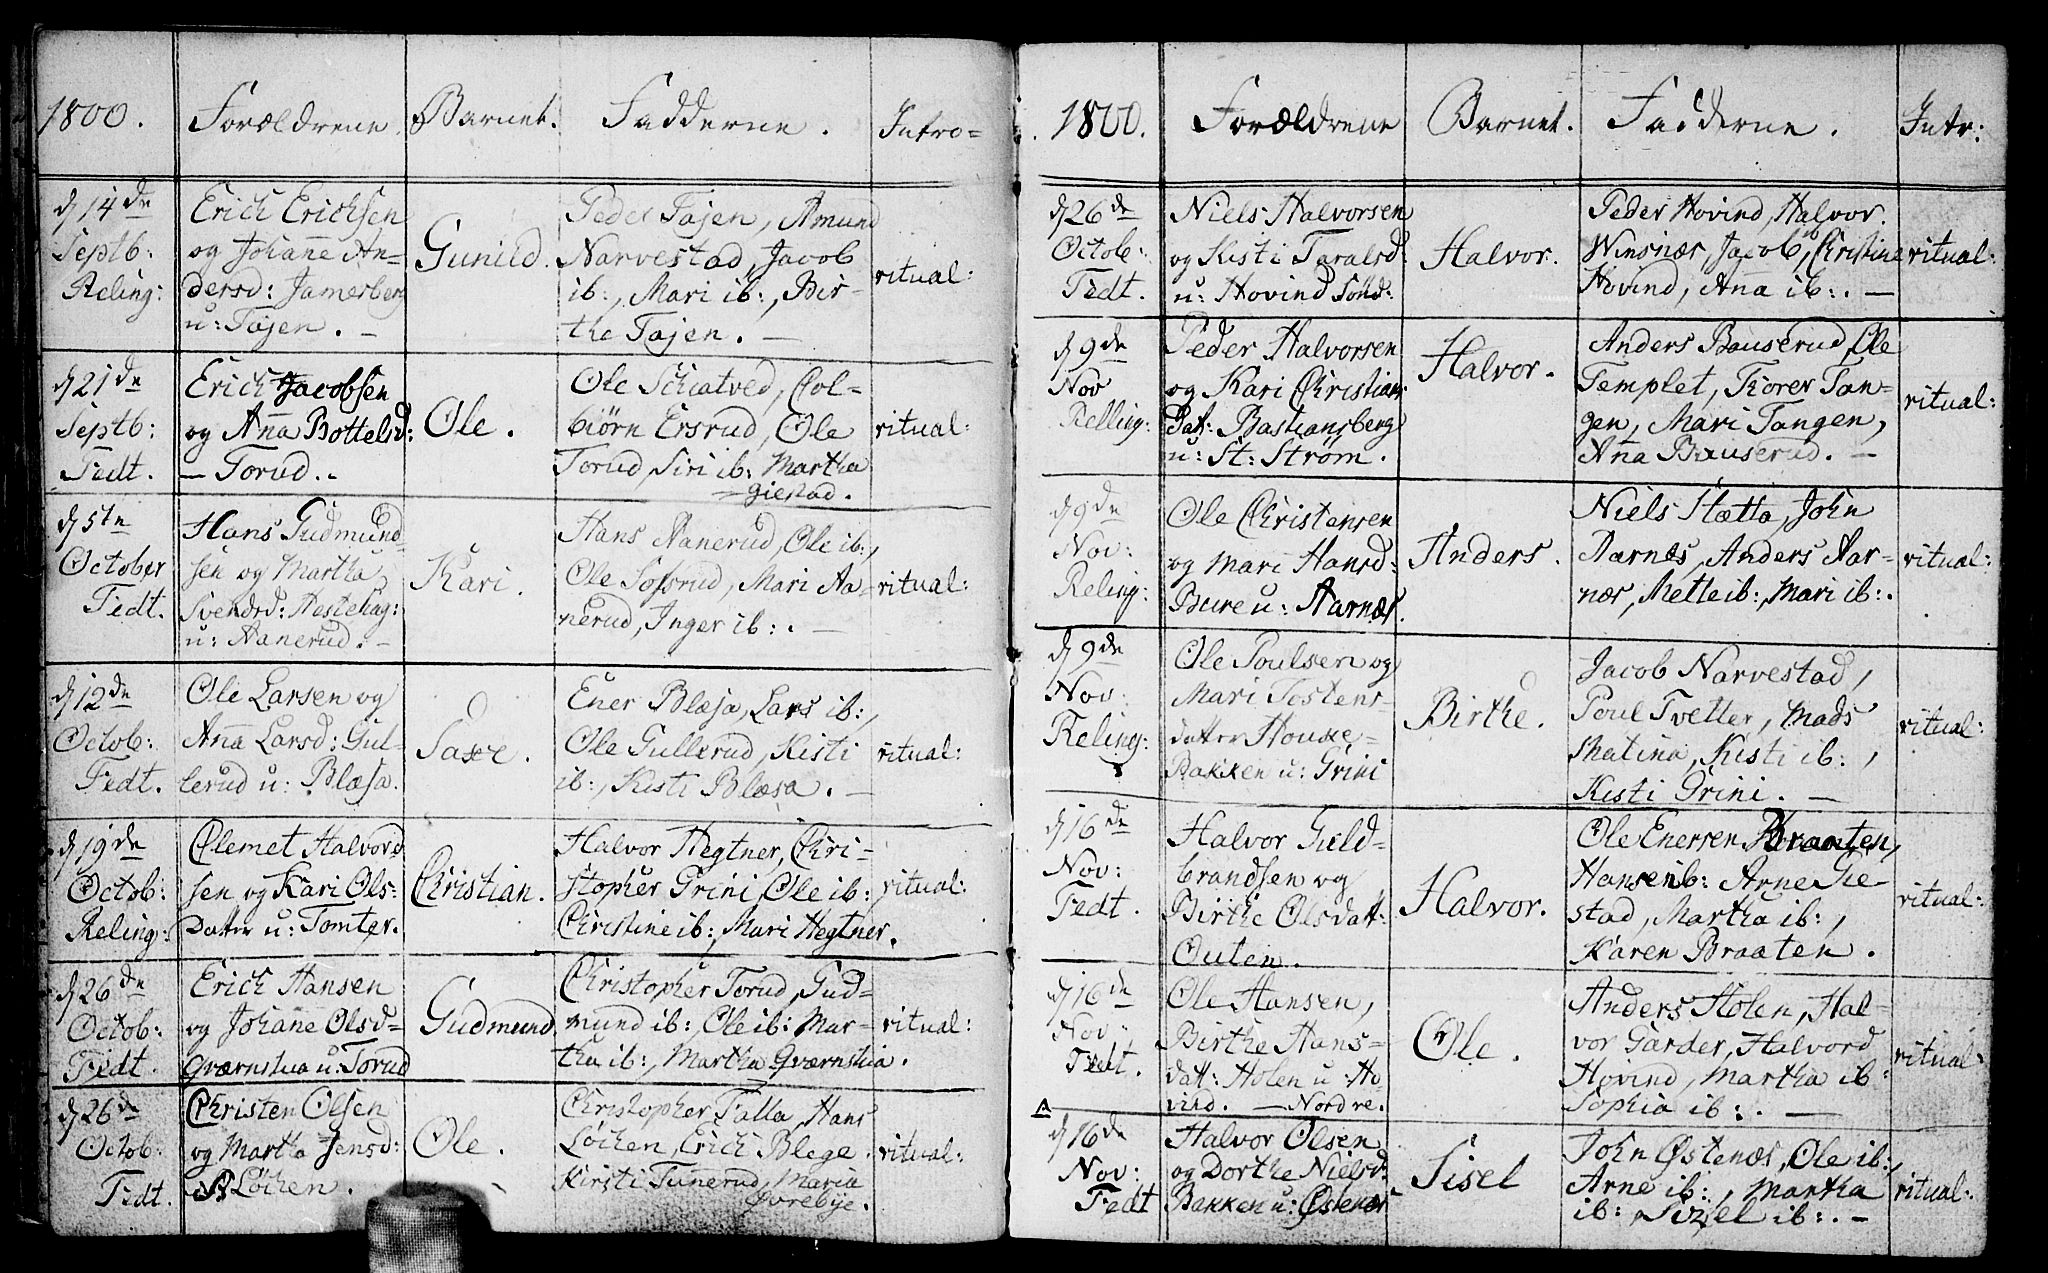 1800. Forældrene. Barnet. Fadderne. Intro=
d 14de Septb: Reling:
Erich Erichsen
og Johañe An=
dersd: Jamerberg
u: Tøjen. —
Gunild.
Peder Tøjen, Amund
Narvestad, Jacob
ib:, Mari ib:, Bir=
the Tøjen. —
ritual:
d 21de Septb: Fedt.
Erich Jacobsen
og Aña Bottelsd:
— Torud. -
Ole.
Ole Schiatved, Col=
biørn Ersrud, Ole
Torud, Siri ib: Martha
= Giestad.
ritual:
d 5te October Fedt.
Hans Gudmund=
sen og Martha
Svendsd: Hestehag:
u: Aanerud. —
Kari.
Hans Aanerud, Ole ib:,
Ole Sossrud, Mari Aa=
nerud, Inger ib:. —
ritual:
d 12de Octob: Fedt.
Ole Larsen og
Aña Larsd: Gul=
lerud u: Blæsa.
Saxe.
Ener Blæsa, Lars ib:,
Ole Gullerud, Kisti
ib:, Kisti Blæsa. —
ritual:
d 19de Octob: Reling:
Clemet Halvord
sen og Kari Ols:
Datter u: Tomter.
Christian.
Halvor Hegtner, Chri=
stopher Grini, Ole ib:
Christine ib:, Mari Hegtner.
ritual:
d 26de Octob: Fedt.
Erich Hansen
og Johañe Olsd=
Gværnstua u: Torud
Gudmund.
Christopher Torud, Gud=
mund ib: Ole ib: Mar=
tha ib:, Martha Gværnstua.
ritual:
d 26de Octob: Fedt.
Christen Olsen
og Martha Jensd:
Løchen.
Ole.
Christopher Falla, Hans
Løchen, Erich Blege
Kirsti Tunerud, Maria
Øvrebye.
ritual:
1800. Forældrene Barnet. Fadderne. Intr:
d 26de Octob: Fedt.
Niels Halvorsen
og Kisti Taralsd:
u: Hovind Sønd:
Halvor.
Peder Hovind, Halvor
Winsnæs, Jacob ib, Christine
Hovind, Aña ib:. —
ritual:
d 9de Nov Relling:
Peder Halvorsen
og Kari Christian
Dat: Bastiansberg
u: St: Strøm.
Halvor.
Anders Bauserud, Ole
Templet, Torer Tan=
gen, Mari Tangen,
Aña Bauserud. —
ritual:
d 9de Nov: Reling:
Ole Christensen
og Mari Hansd:
Bure u: Aarnæs.
Anders.
Niels Slætta, John
Aarnæs, Anders Aar=
næs, Mette ib:, Mari ib:.
ritual:
d 9de Nov: Reling:
Ole Poulsen og
Mari Tostens=
datter Houxe=
Bakken u: Grini
Birthe.
Jacob Narvestad,
Poul Tvetter, Mads
Matina, Kisti ib:,
Kisti Grini. —
ritual:
d 16de Nov: Fedt.
Halvor Guld=
brandsen og
Birthe Olsdatt:
Outen.
Halvor.
Ole Enersen Braaten,
Hans ib: Arne Gie=
stad, Martha ib:,
Karen Braaten.
ritual:
d 16de Nov: Fedt.
Ole Hansen,
Birthe Hans=
datt: Holen u: Ho
vind. — Nordre.
Ole.
Anders Holen, Hal=
vor Garder, Halvord
Hovind, Martha ib:
Sophia ib:. —
ritual:
d 16de Nov: Fedt
Halvor Olsen
og Dorthe Nielsd:
Bakken u: Østenæs
Sisel
John Østenæs, Ole ib:,
Arne ib:, Martha
ib: Sizel ib:. —
ritual: